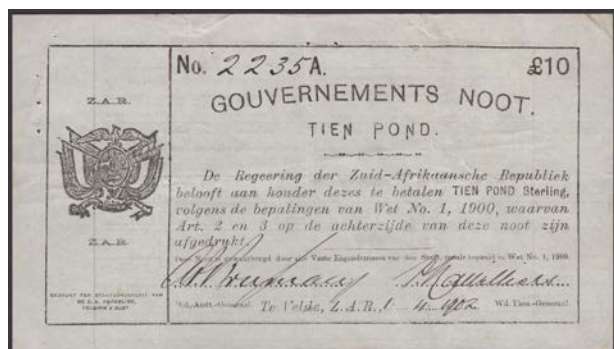 No. 2235A.
£10
GOUVERNEMENTS NOOT.
TIEN POND.
Z.A.R.
De Regeering der Zuid-Afrikaansche Republiek
belooft aan houder dezes te betalen TIEN POND Sterling,
volgens de bepalingen van Wet No. 1, 1900, waarvan
Art. 2 en 3 op de achterzijde van deze noot zijn
afgedrukt.
Z.A.R.
Deze Noot is gewaarborgd door alle Vaste Eigendommen van den Staat, zooals bepaald in Wet No. 1, 1900.
Wd. Audt.-Generaal.
Te Velde, Z.A.R., 1 4 1902
Wd. Thes.-Generaal.